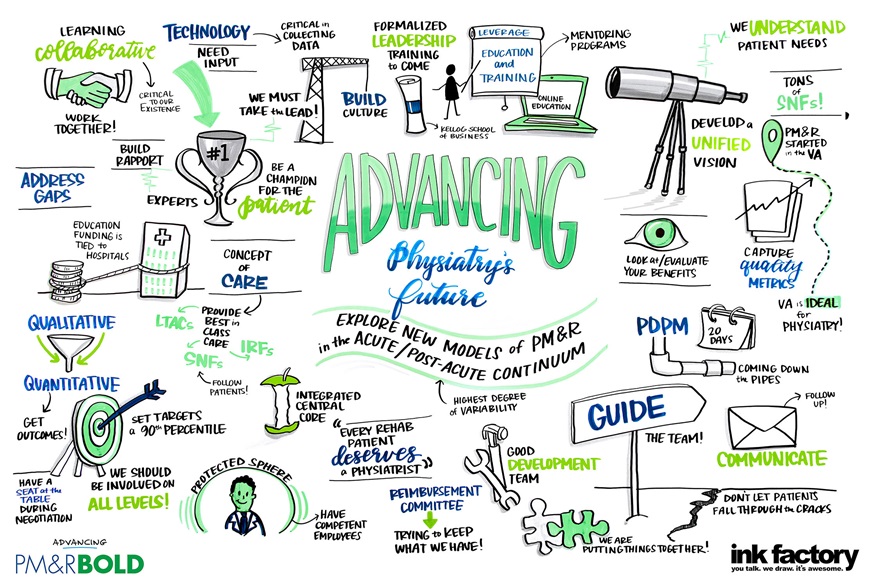 LEARNING
collaborative
CRITICAL
TO OUR
EXISTENCE
WORK
TOGETHER!
TECHNOLOGY
NEED
INPUT
CRITICAL in
COLLECTING
DATA
WE MUST
TAKE the LEAD!
BUILD
CULTURE
FORMALIZED
LEADERSHIP
TRAINING
to COME
KELLOG SCHOOL
of BUSINESS
LEVERAGE
EDUCATION
and
TRAINING
MENTORING
PROGRAMS
ONLINE
EDUCATION
WE UNDERSTAND
PATIENT NEEDS
TONS
of
SNFs!
DEVELOP a
UNIFIED
VISION
PM&R
STARTED
in the VA
ADDRESS
GAPS
BUILD
RAPPORT
EXPERTS
#1
BE A
CHAMPION
FOR THE
patient
ADVANCING
Physiatry's
future
EXPLORE NEW MODELS of PM&R
in the ACUTE/POST-ACUTE CONTINUUM
HIGHEST DEGREE
of VARIABILITY
LOOK at/EVALUATE
YOUR BENEFITS
CAPTURE
quality
METRICS
VA is IDEAL
for
PHYSIATRY!
EDUCATION
FUNDING is
TIED to
HOSPITALS
CONCEPT
of
CARE
PROVIDE
BEST in
CLASS
CARE
LTACs
IRFs
SNFs
FOLLOW
PATIENTS!
QUALITATIVE
QUANTITATIVE
GET
OUTCOMES!
SET TARGETS
a 90th PERCENTILE
INTEGRATED
CENTRAL
CORE
PDPM
20
DAYS
COMING DOWN
the PIPES
GUIDE
THE TEAM!
FOLLOW
UP!
COMMUNICATE
HAVE a
SEAT at the
TABLE
DURING
NEGOTIATION
WE SHOULD
BE INVOLVED ON
ALL LEVELS!
PROTECTED SPHERE
HAVE
COMPETENT
EMPLOYEES
"EVERY REHAB
PATIENT
deserves
a PHYSIATRIST"
REIMBURSEMENT
COMMITTEE
TRYING to KEEP
WHAT WE HAVE!
GOOD
DEVELOPMENT
TEAM
WE ARE
PUTTING THINGS TOGETHER!
DON'T LET PATIENTS
FALL THROUGH the CRACKS
ADVANCING
PM&RBOLD
ink factory
you talk. we draw. it's awesome.